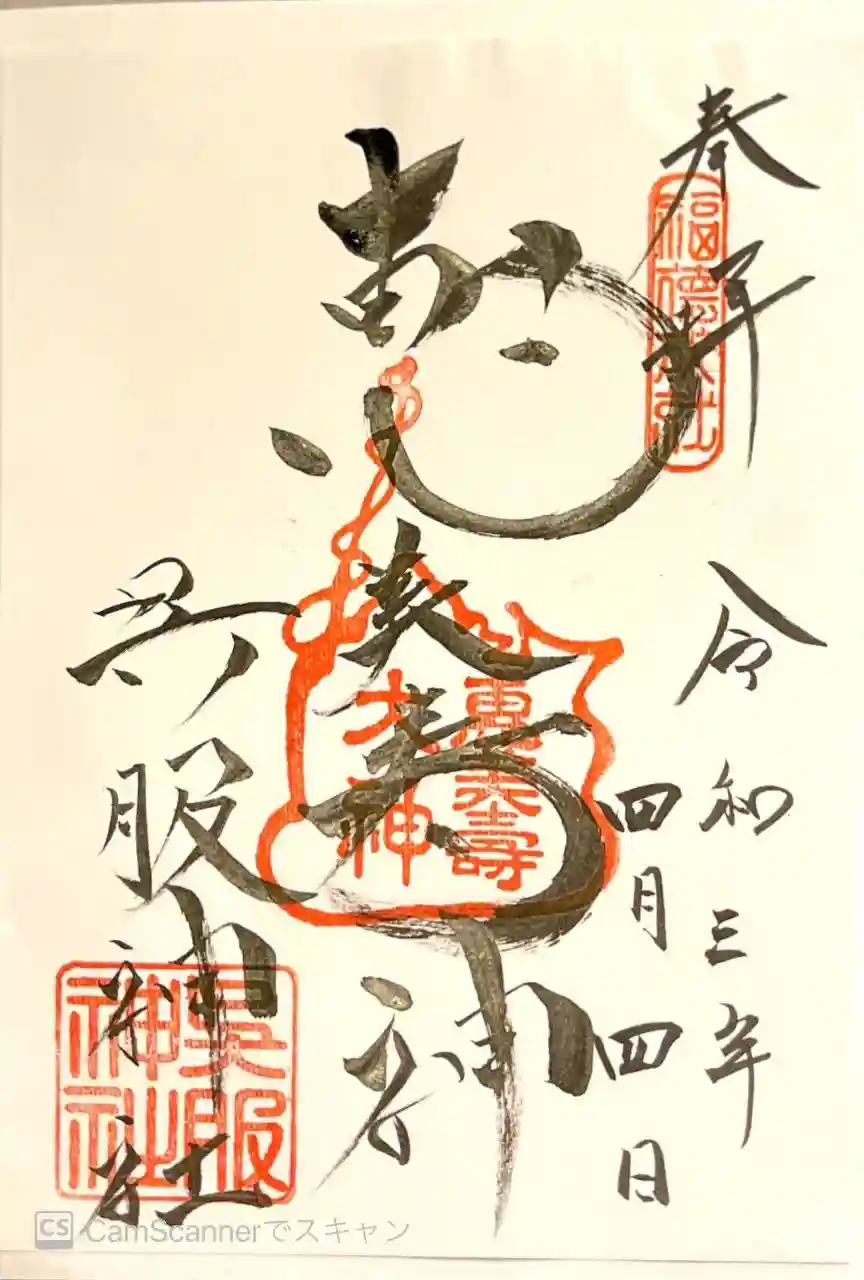 奉拝
令和三年
四月四日
恵美寿神
惠美壽
大神
呉服神社
呉服
神社
CS CamScannerでスキャン